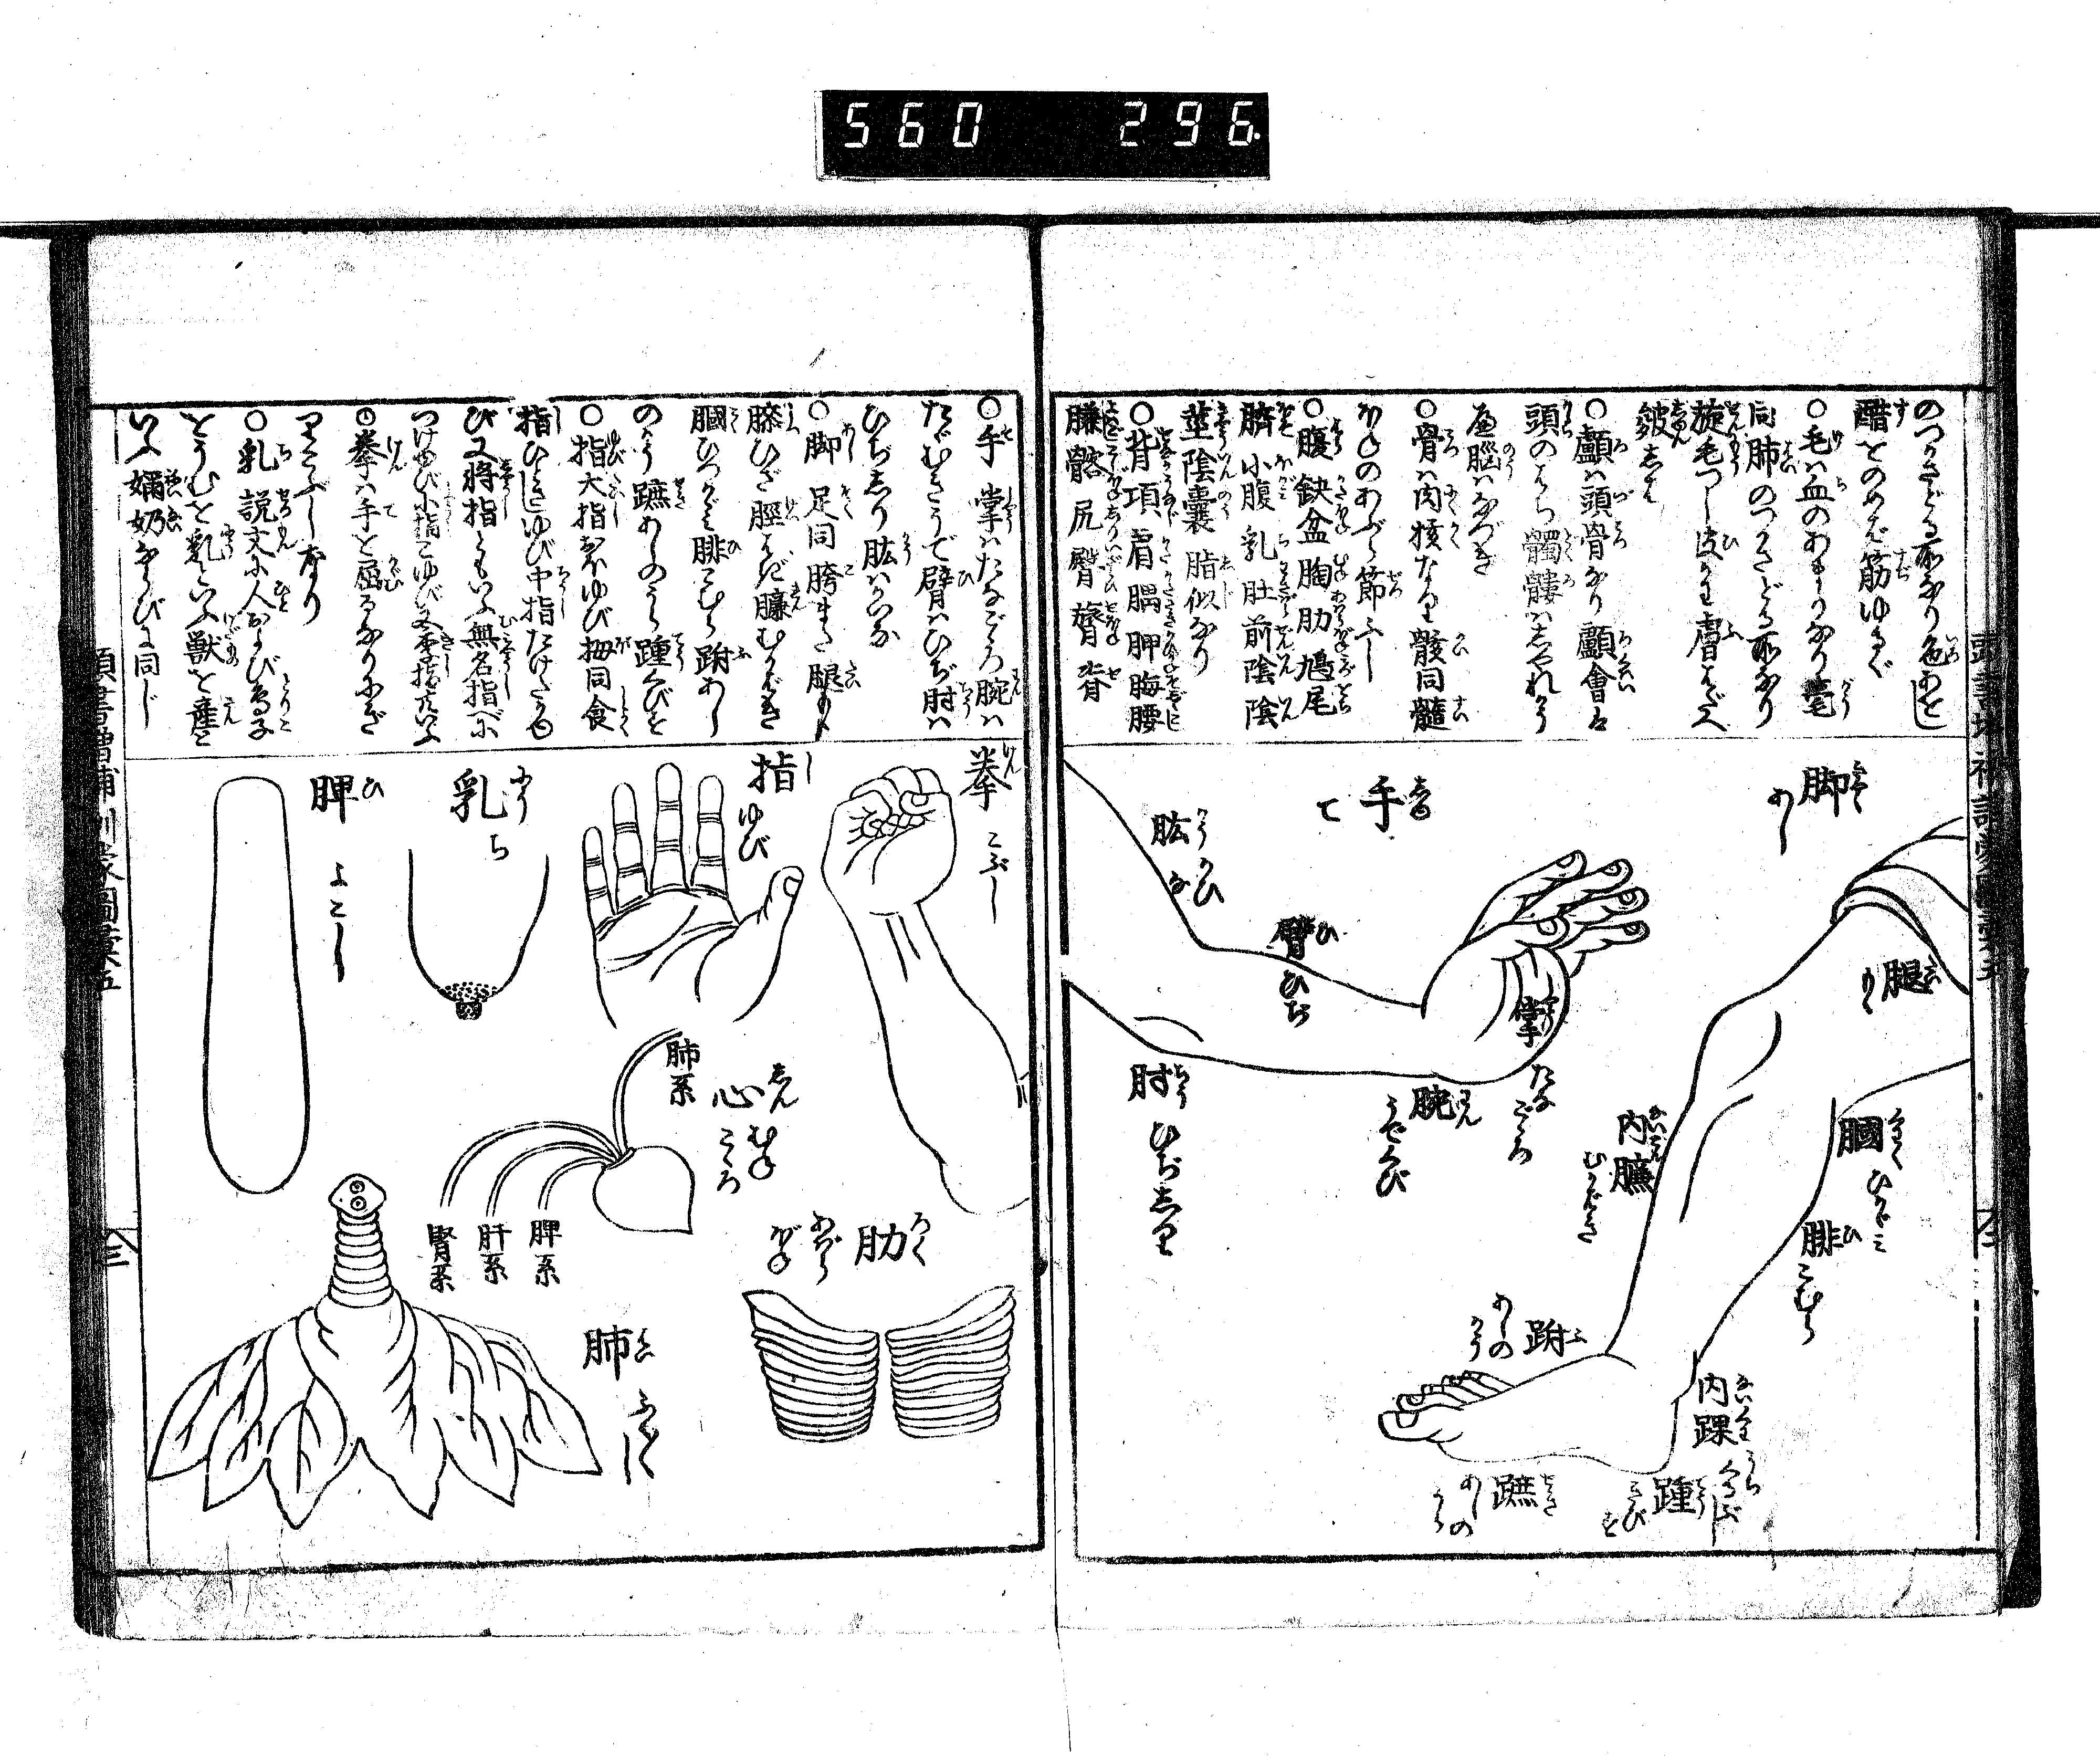 560 296
のつかさどる所なり色あをし
醋をのめば筋ゆるぐ
○毛ハ血のあまりなり毫
同肺のつかさどる所なり
旋毛つじ皮かは膚はだへ
皴しは
○顱ハ頭骨なり顱會ハ
頭のはち髑髏ハしやれかう
べ脳ハなづき
○骨ハ肉核なり骸同髓
ほねのあぶら節ふし
○腹 缺盆 胸 肋 鳩尾
臍 小腹 乳 肚 前陰 陰
莖 陰嚢 脂似なり
○背 項 肩 髃 胛 脢 腰
膁 髂 尻 臀 膂 脊
脚 きやく あし
腿 たい もゝ
膕 ひかゞみ
腓 ひ こむら
内臁 むかはぎ
跗 ふ あしのかう
内踝 うちくるぶし
踵 きびす
蹠 せき あしのうら
手 しゆ て
肱 かう かひな
臂 ひ ひぢ
掌 たなごころ
腕 わん うでくび
肘 ちう ひぢしり
○手 掌ハたなごころ腕ハ
たぶむきうで臂ハひぢ肘ハ
ひぢしり肱ハかいな
○脚 足同胯また腿もゝ
膝ひざ脛はぎ臁むかばき
膕ひつかゞみ腓こむら跗あし
のかう蹠あしのうら踵くびを
○指大指おほゆび拇同食
指ひとさしゆび中指たけたかゆ
び又將指ともいふ無名指べに
つけゆび小指こゆび又季指共いふ
○拳ハ手を屈るなりにぎ
りこぶしなり
○乳 説文に人および鳥子
をうむを乳といふ獣を産と
いふ嬭奶ならびに同じ
拳 けん こぶし
指 し ゆび
乳 にう ち
脾 ひ よこし
心 しん むね こころ
肺系
脾系
肝系
腎系
肋 ろく あばらぼね
肺 はい ふくふくし
頭書増補訓蒙圖彙五
三